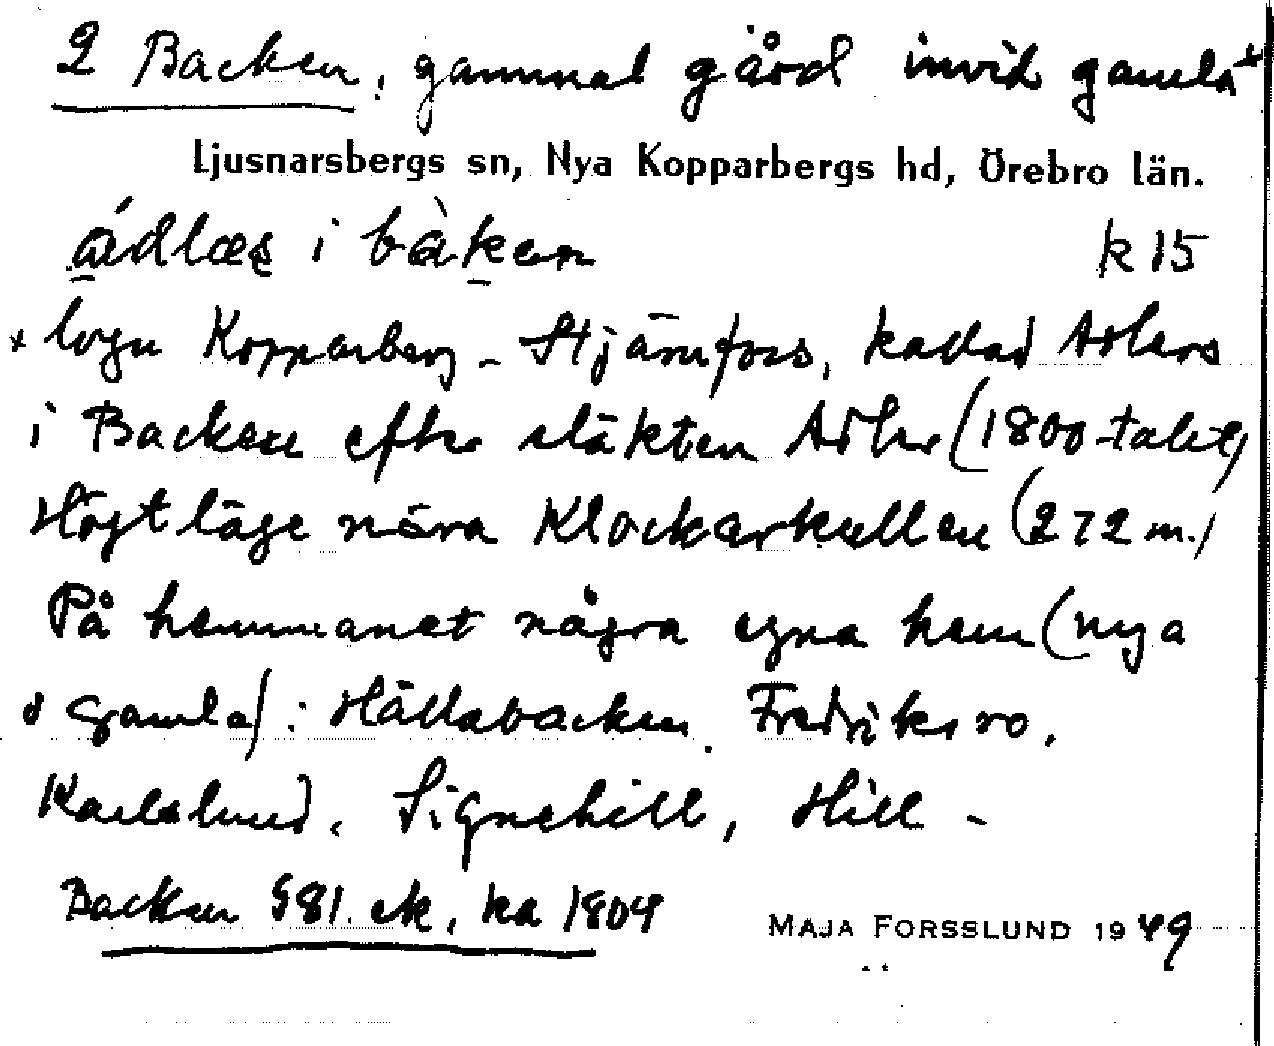 2 Backen, gammal gård invid gamla +
Ljusnarsbergs sn, Nya Kopparbergs hd, Örebro län.
ádlæs i bàken k 15
+ lvgn Kopparberg - Stjärnfors, kallad Adlers
i Backen efter släkten Adler (1800-talet)
Högt läge nära Klockarkullen (272 m.)
På hemmanet några egna hem (nya
o gamla): Hällabacken, Fredriksro,
Karlslund, Signehill, Hill -
Backen § 81. ek. ka 1804
MAJA FORSSLUND 1949